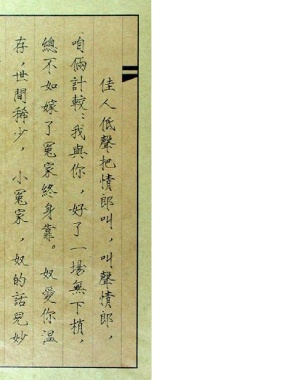 佳人低聲把情郎叫，叫聲情郎，
咱倆計較：我與你，好了一場無下梢，
總不如嫁了冤家終身靠。奴愛你溫
存，世間稱少，小冤家，奴的話兒妙